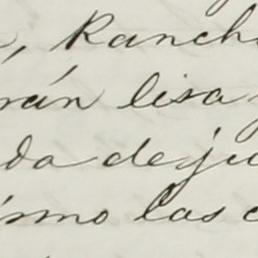 , Ranch
rán lisa y
da de ju
ismo las c